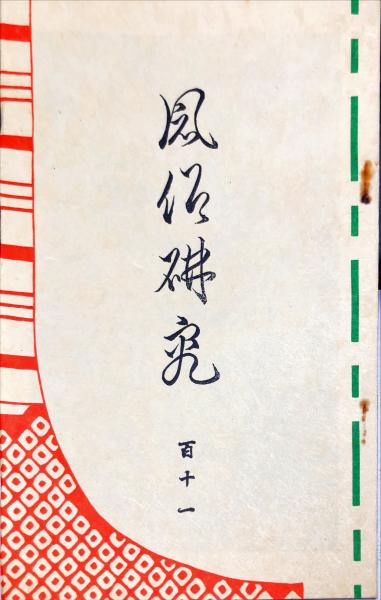 風俗研究
百十一